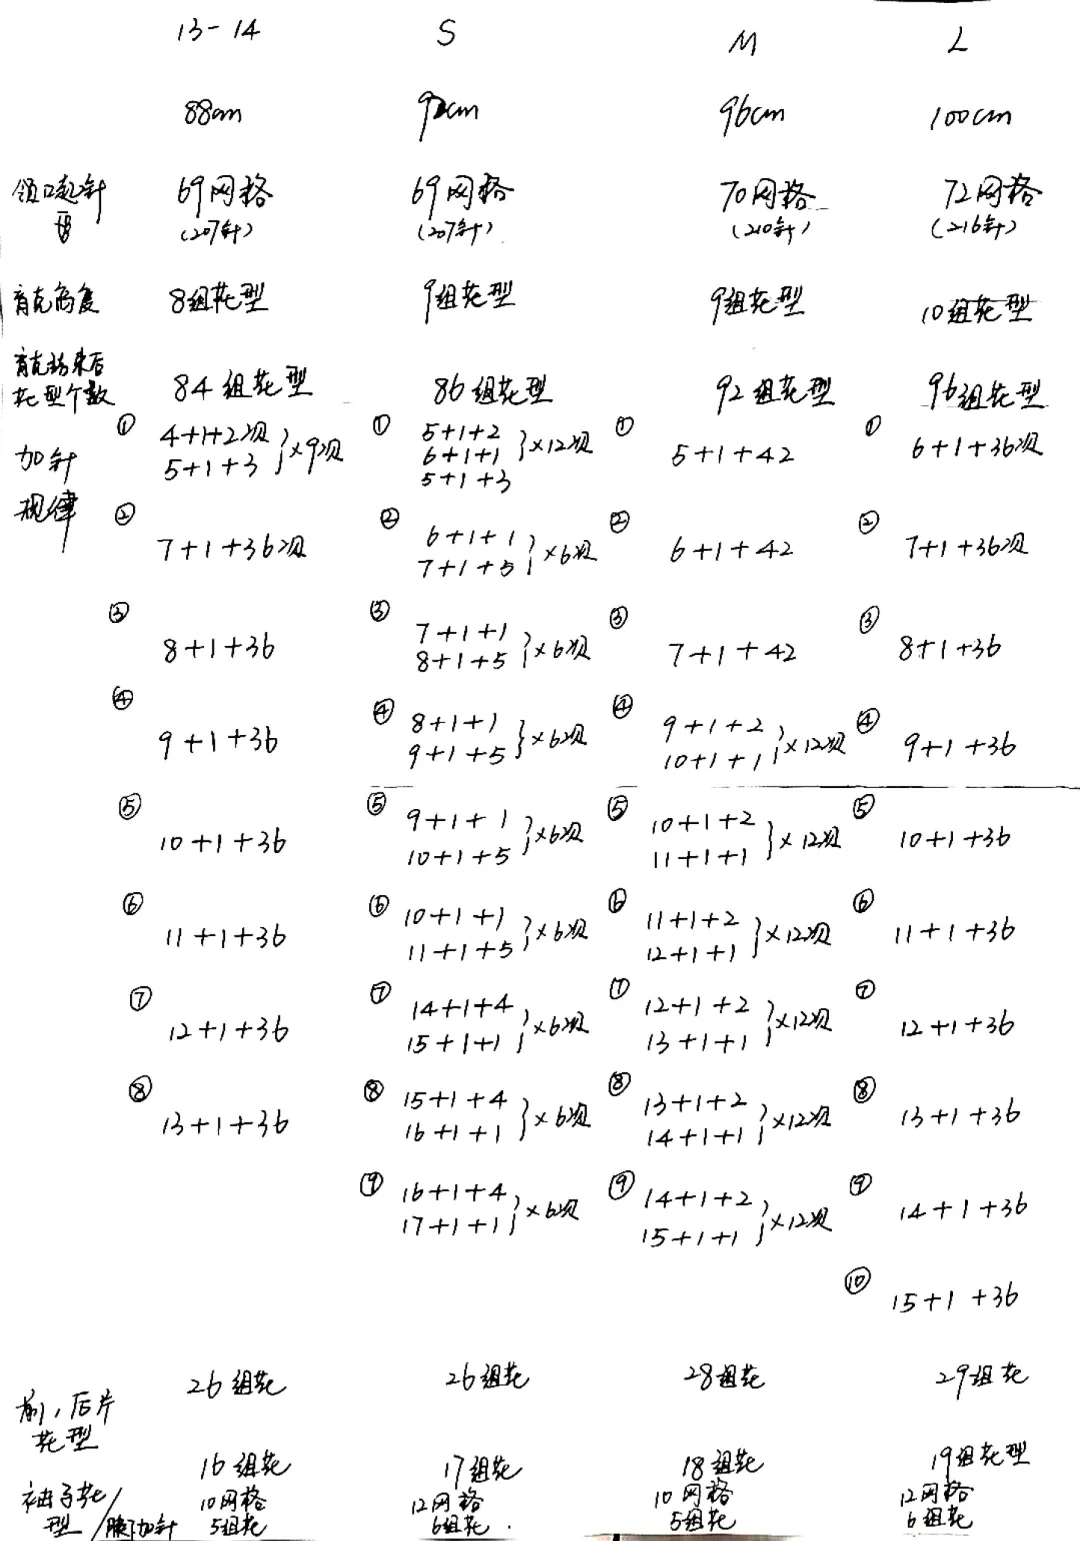 13-14 S M L
88cm 92cm 96cm 100cm
领口起针 69网格 69网格 70网格 72网格
(207针) (207针) (210针) (216针)
育克高度 8组花型 9组花型 9组花型 10组花型
育克结束后
花型个数 84组花型 86组花型 92组花型 96组花型
加针
规律
① 4+1+2次 }×9次 ① 5+1+2 }×12次 ① 5+1+42 ① 6+1+36次
5+1+3 6+1+1
5+1+3
② 7+1+36次 ② 6+1+1 }×6次 ② 6+1+42 ② 7+1+36次
7+1+5
③ 8+1+36 ③ 7+1+1 }×6次 ③ 7+1+42 ③ 8+1+36
8+1+5
④ 9+1+36 ④ 8+1+1 }×6次 ④ 9+1+2 }×12次 ④ 9+1+36
9+1+5 10+1+1
⑤ 10+1+36 ⑤ 9+1+1 }×6次 ⑤ 10+1+2 }×12次 ⑤ 10+1+36
10+1+5 11+1+1
⑥ 11+1+36 ⑥ 10+1+1 }×6次 ⑥ 11+1+2 }×12次 ⑥ 11+1+36
11+1+5 12+1+1
⑦ 12+1+36 ⑦ 14+1+4 }×6次 ⑦ 12+1+2 }×12次 ⑦ 12+1+36
15+1+1 13+1+1
⑧ 13+1+36 ⑧ 15+1+4 }×6次 ⑧ 13+1+2 }×12次 ⑧ 13+1+36
16+1+1 14+1+1
⑨ 16+1+4 }×6次 ⑨ 14+1+2 }×12次 ⑨ 14+1+36
17+1+1 15+1+1
⑩ 15+1+36
前,后片 26组花 26组花 28组花 29组花
花型
袖子花 16组花 17组花 18组花 19组花型
型/腋下加针 10网格 12网格 10网格 12网格
5组花 6组花. 5组花 6组花